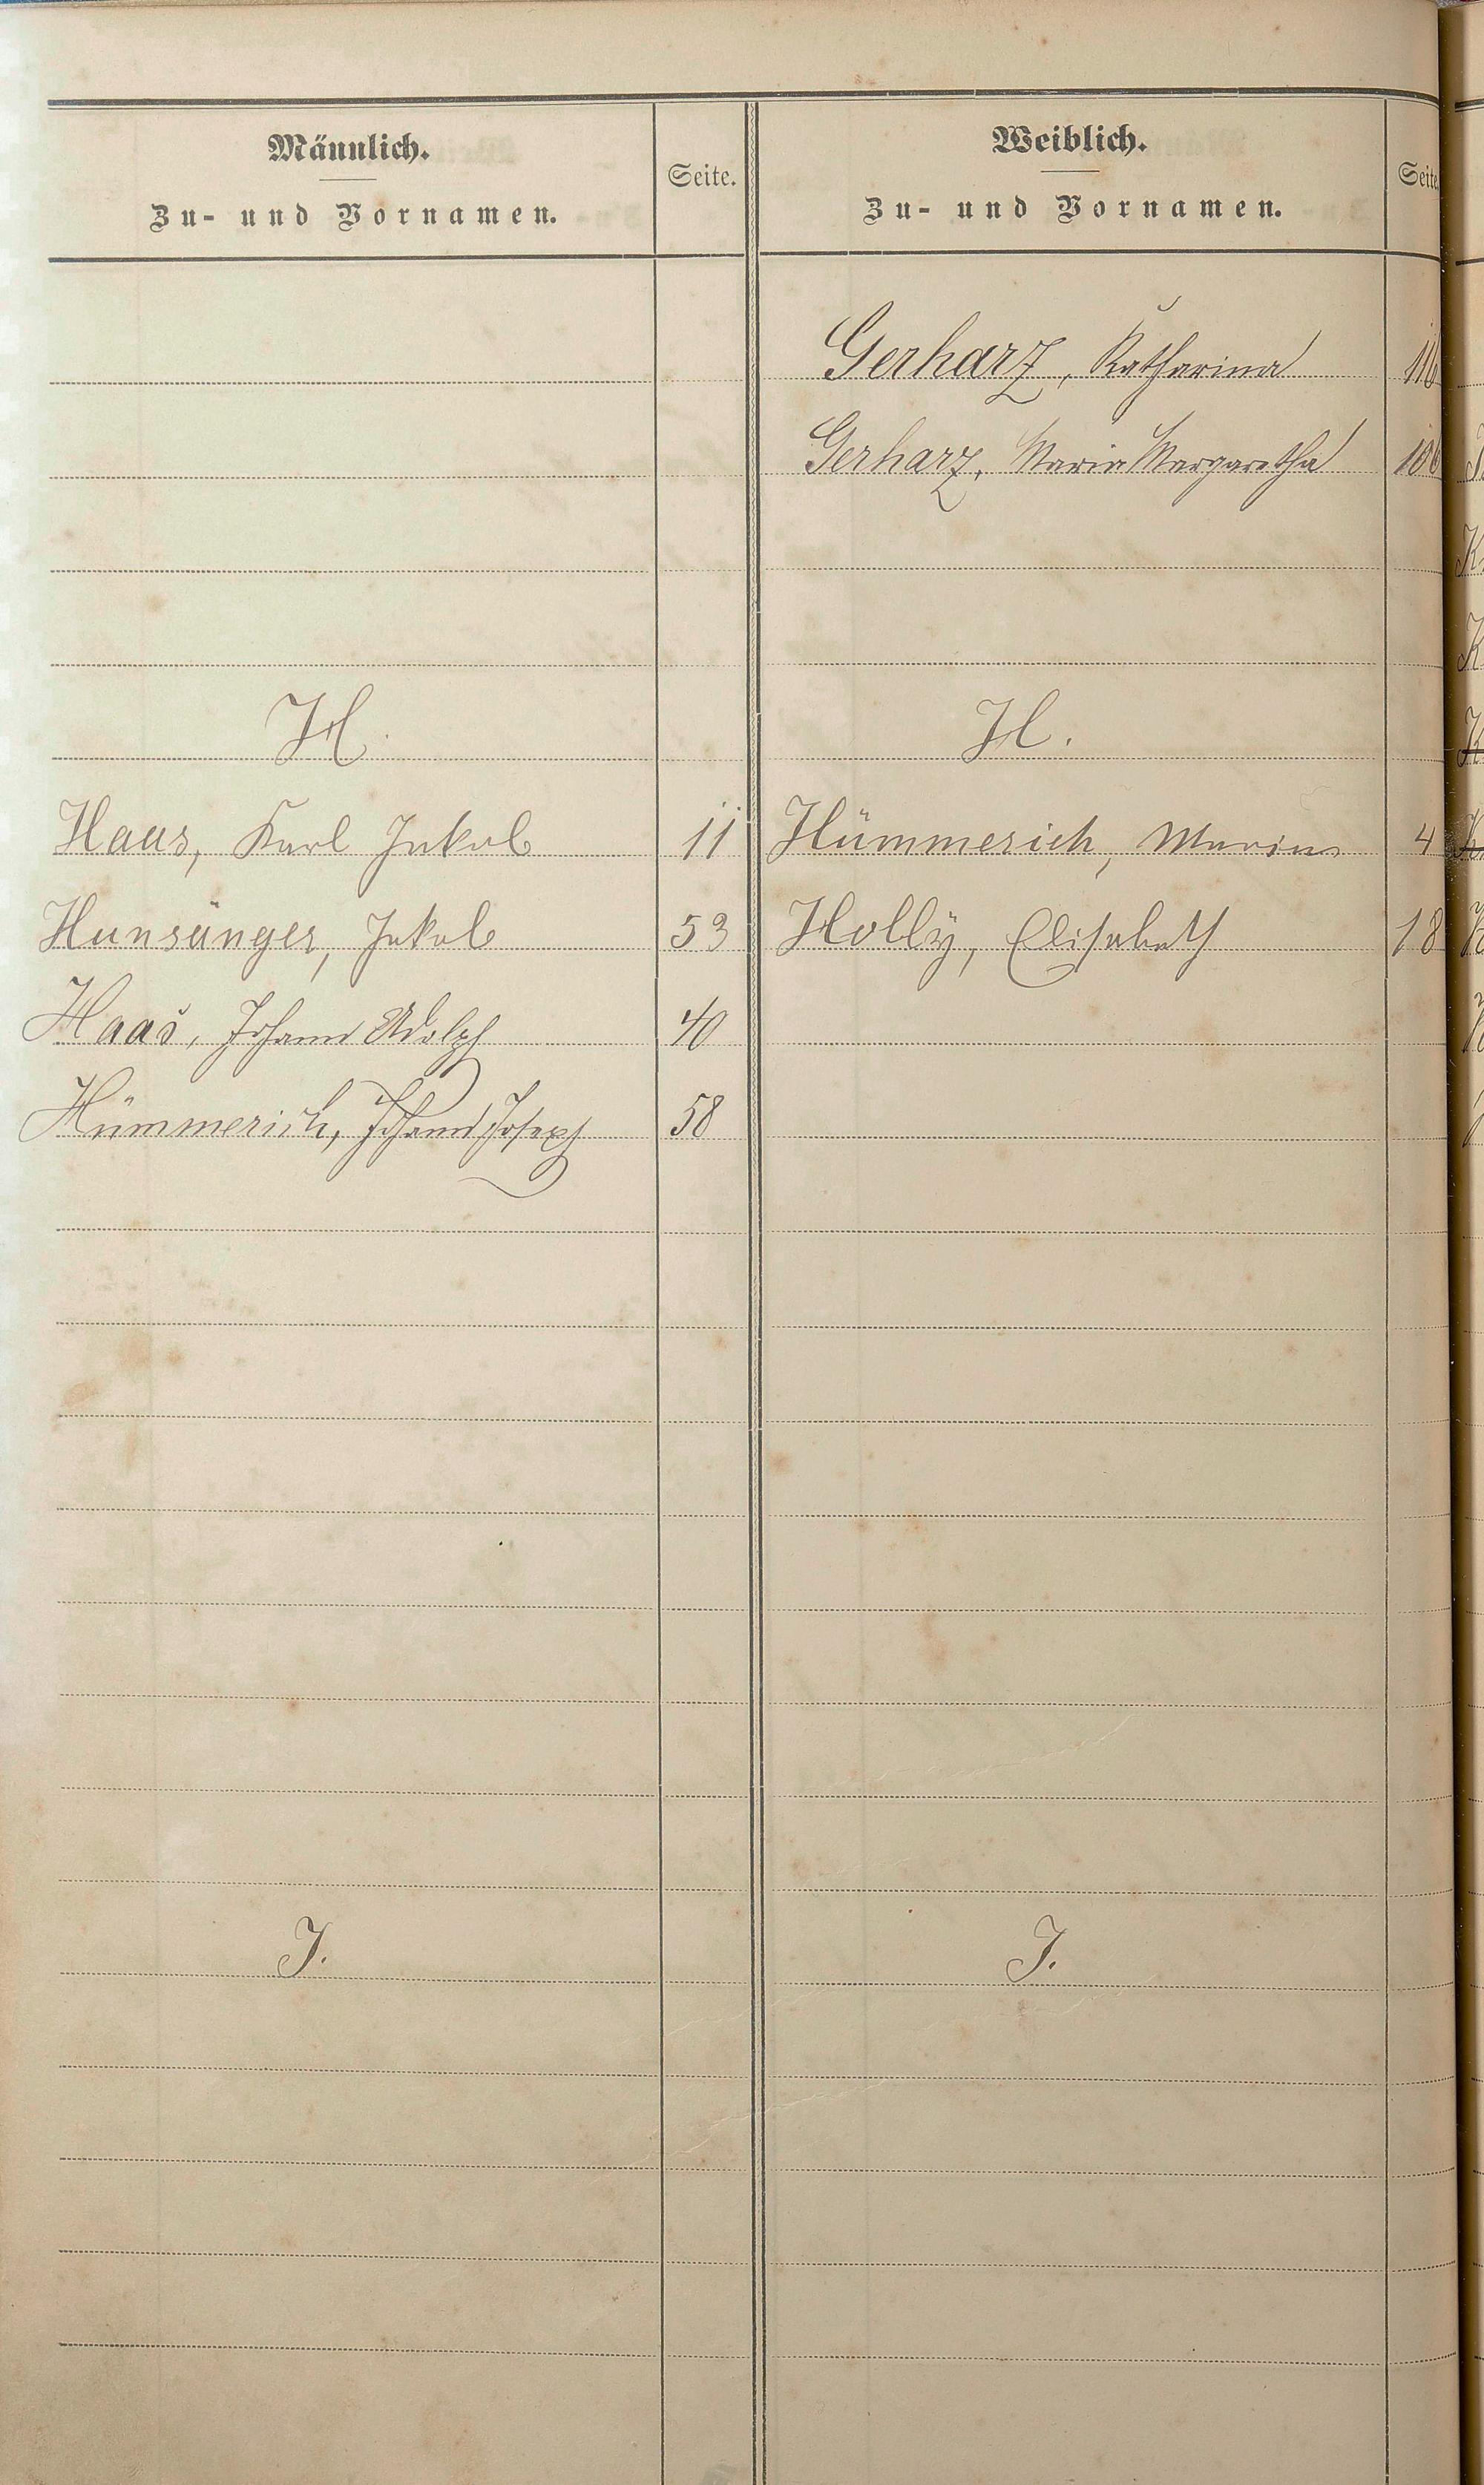 Männlich.
Zu- und Vornamen.
Seite.
Weiblich.
Zu- und Vornamen.
Seite.
Gerharz, Katharina 116
Gerharz, Maria Margaretha 106
H.
H.
Haas, Karl Jakob 11
Hümmerich, Maria 4
Hunsänger, Jakob 53
Holly, Elisabeth 18
Haas, Johann Adolph 40
Hümmerich, Johann Joseph 58
J.
J.